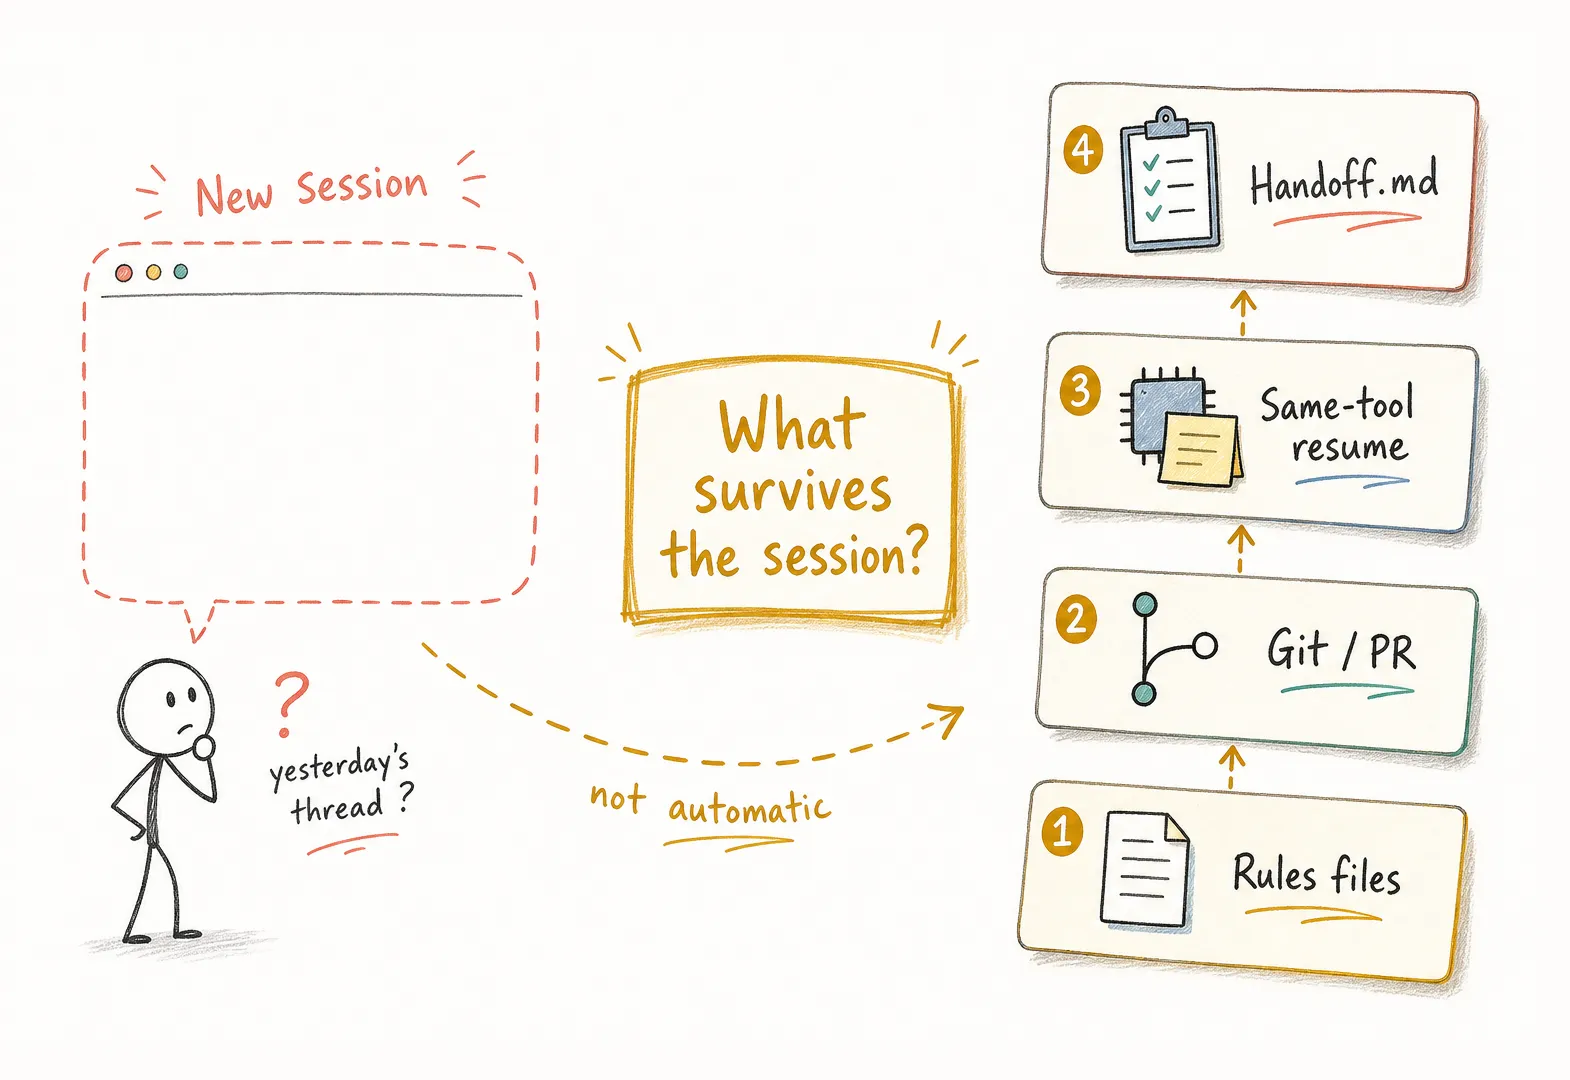 New Session
?
yesterday's
thread ?
What
survives
the session?
not automatic
4
Handoff.md
3
Same-tool
resume
2
Git / PR
1
Rules files